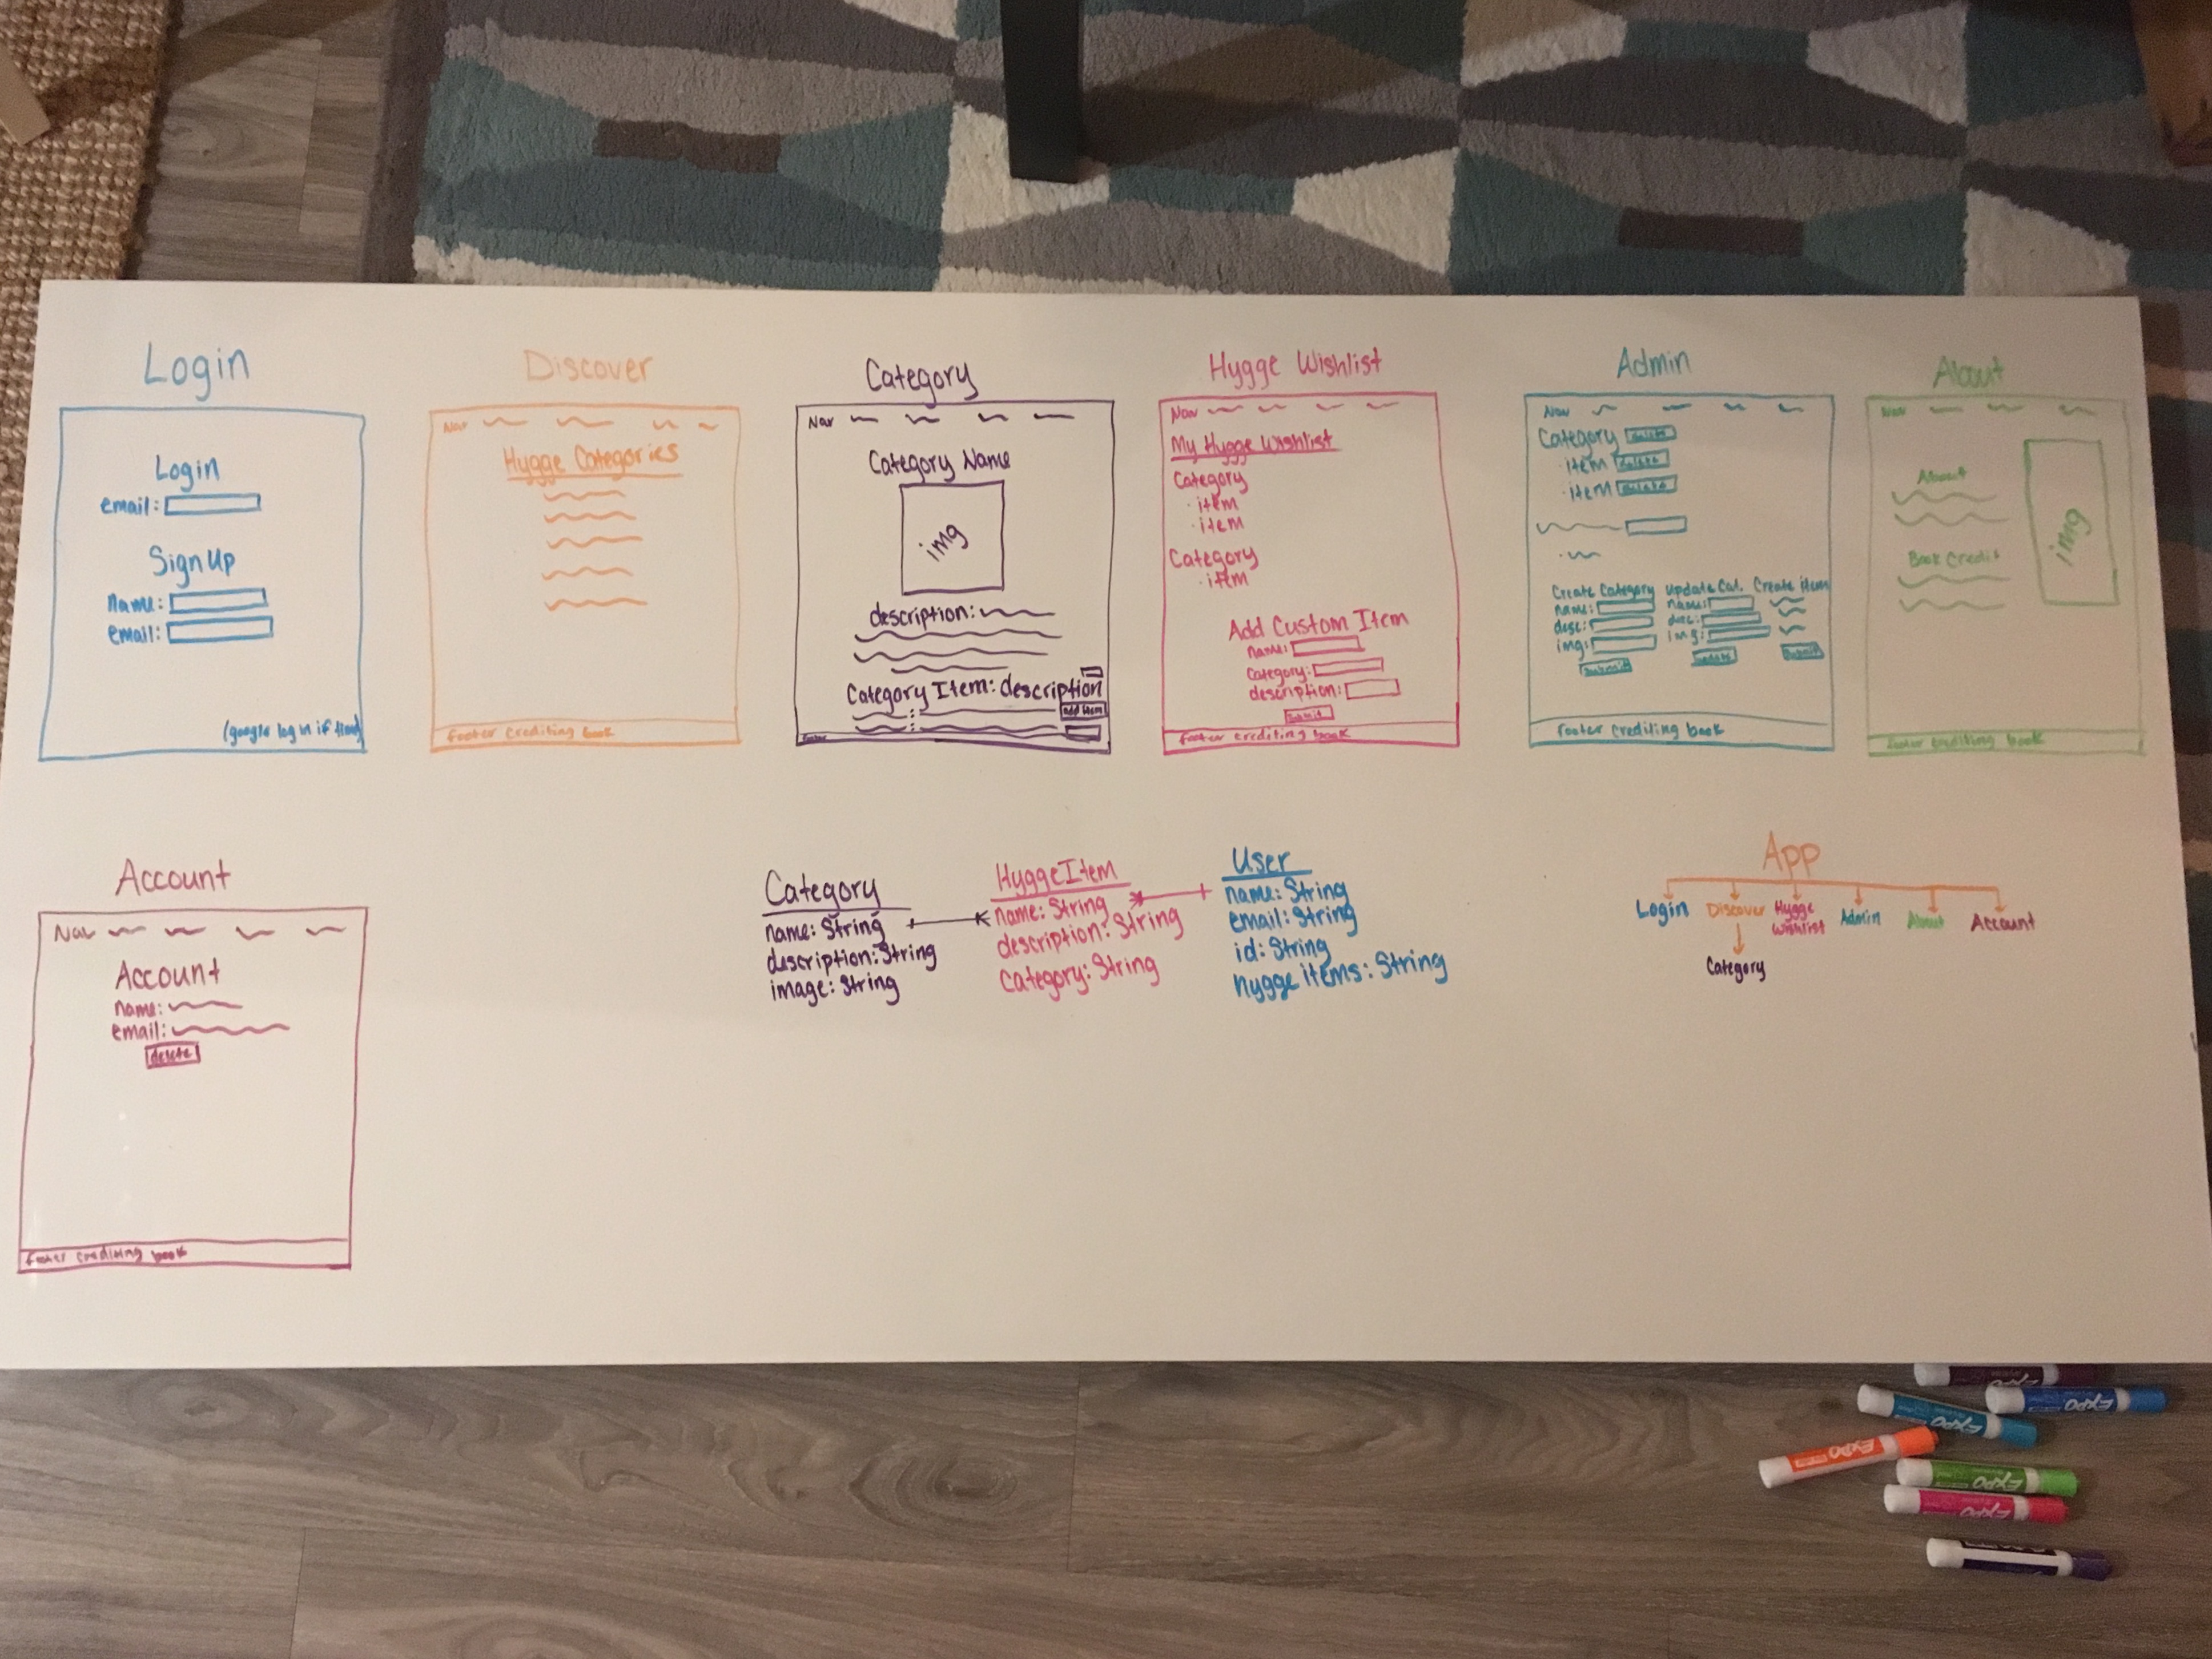 Login
Login
email:
Sign Up
name:
email:
(google log in if time)
Discover
Nav
Hygge Categories
footer crediting book
Category
Nav
Category Name
img
description:
Category Item: description
add item
footer
Hygge Wishlist
Nav
My Hygge Wishlist
Category
· item
· item
Category
· item
Add Custom Item
name:
Category:
description:
submit
footer crediting book
Admin
Nav
Category delete
· item delete
· item delete
Create Category Update Cat. Create item
name: name:
desc: desc:
img: img:
submit update submit
footer crediting book
About
Nav
About
Book Credit
img
footer crediting book
Account
Nav
Account
name:
email:
delete
footer crediting book
Category
name: String
description: String
image: String
HyggeItem
name: String
description: String
Category: String
User
name: String
email: String
id: String
hygge items: String
App
Login Discover Hygge Wishlist Admin About Account
Category
EXPO
EXPO
EXPO
EXPO
EXPO